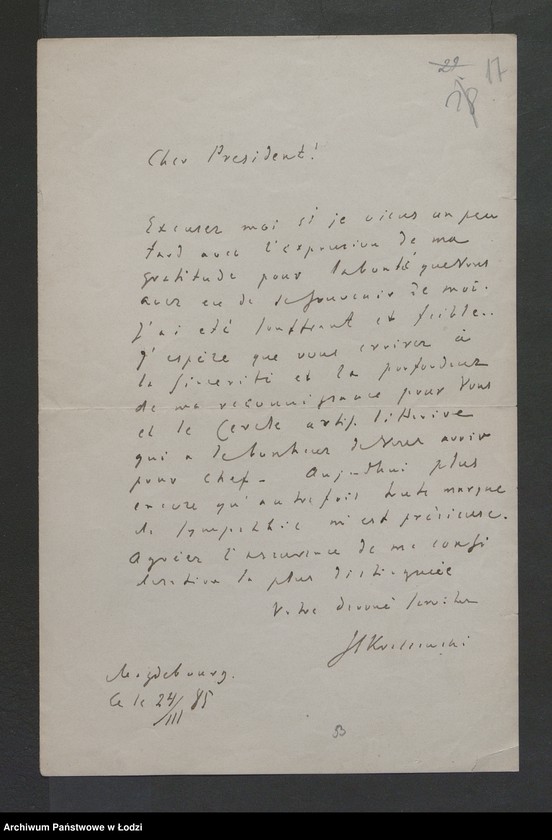 29 17
28
Cher President!
Excusez moi si je viens un peu
tard avec l'expression de ma
gratitude pour la bonté que Vous
avez eu de se souvenir de moi.
J'ai eté souffrant et faible..
J'espère que vous croirez à
la sincerité et la profondeur
de ma reconnaissance pour Vous
et le Cercle artist. littéraire
qui a le bonheur de Vous avoir
pour chef. Aujourdhui plus
encore qu'autrefois toute marque
de sympathie m'est précieuse.
Agréez l'assurance de ma consi
deration la plus distinguée
Votre devoué serviteur
JI Kraszewski
Magdebourg.
Ce le 24/III 85
53
Archiwum Państwowe w Łodzi